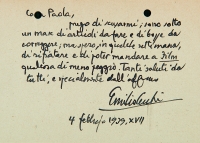 Cara Paola,
prego di scusarmi; sono sotto
un mar di articoli da fare e di bozze da
correggere; ma spero, in qualche settimana,
di rifiatare e di poter mandare a Film
qualcosa di meno peggio. Tanti saluti da
tutti, e specialmente dall'aff.mo
Emilio Cecchi
4 febbraio 1939, XVII